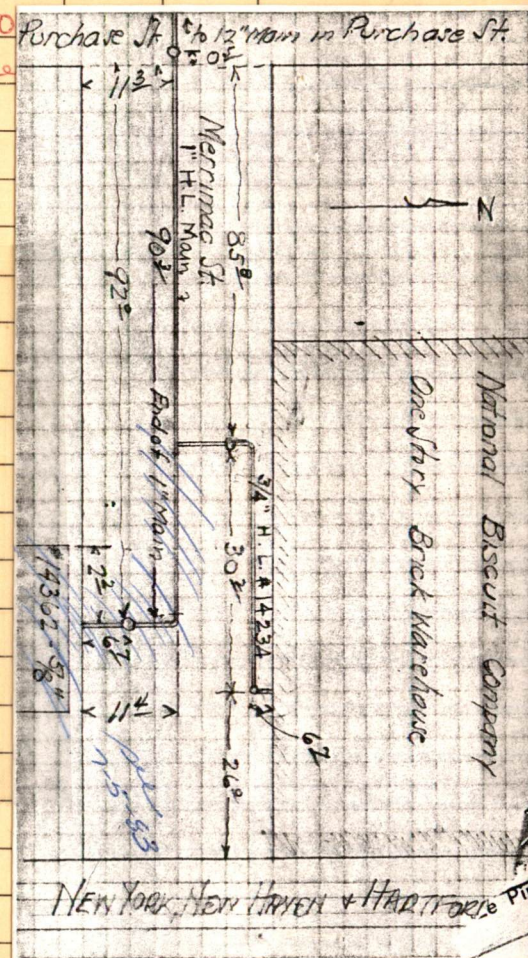 Purchase St. to 12" Main in Purchase St.
11³
Merrimac St.
1" H.L. Main
85⁸
90³
92⁰
N
National Biscuit Company
One Story Brick Warehouse
End of 1" Main
3/4" H.L. # 14234
30²
2²
#14362 - 5/8"
11⁴
26⁹
7-5-83
NEW YORK, NEW HAVEN & HARTFORD